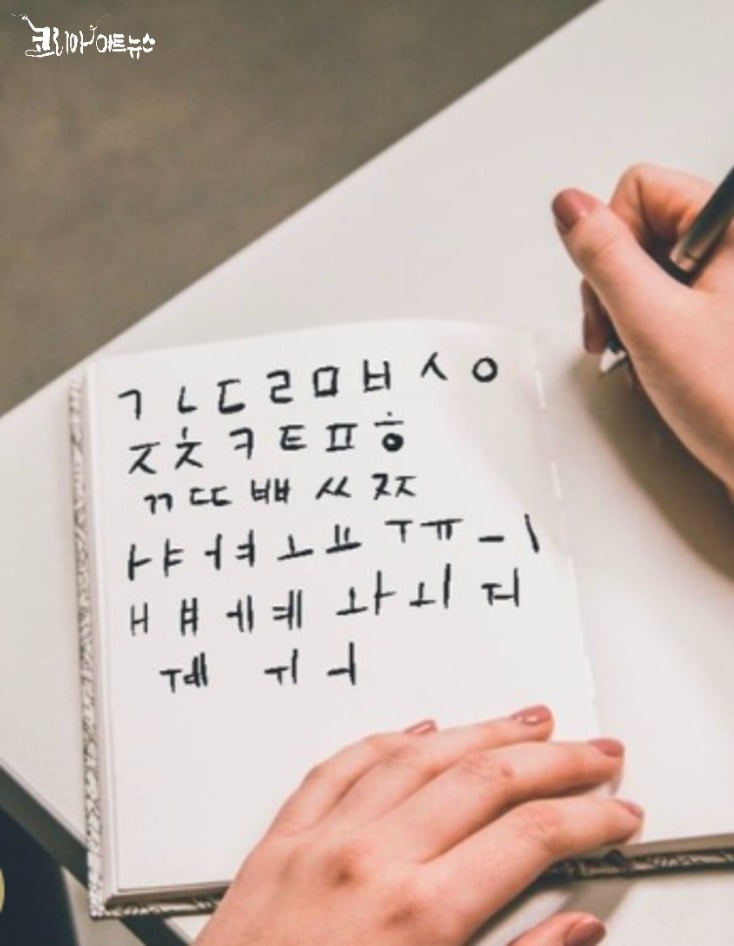 코리아아트뉴스
ㄱ ㄴ ㄷ ㄹ ㅁ ㅂ ㅅ ㅇ
ㅈ ㅊ ㅋ ㅌ ㅍ ㅎ
ㄲ ㄸ ㅃ ㅆ ㅉ
ㅏ ㅑ ㅓ ㅕ ㅗ ㅛ ㅜ ㅠ ㅡ ㅣ
ㅐ ㅒ ㅔ ㅖ ㅘ ㅚ ㅝ
ㅞ ㅟ ㅢ